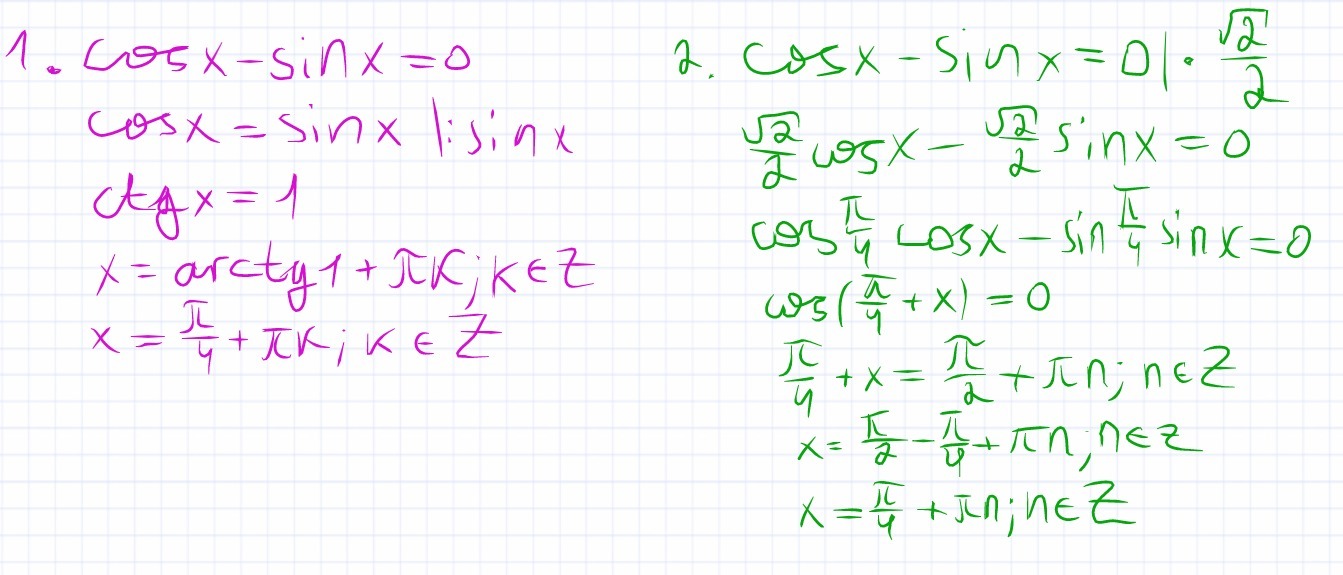 1. cosx-sinx=0
cosx=sinx |:sinx
ctgx=1
x=arcctg1+πk; k∈Z
x=π/4+πk; k∈Z
2. cosx-sinx=0|·√2/2
√2/2 cosx-√2/2 sinx=0
cos π/4 cosx-sin π/4 sinx=0
cos(π/4+x)=0
π/4+x=π/2+πn; n∈Z
x=π/2-π/4+πn; n∈Z
x=π/4+πn; n∈Z